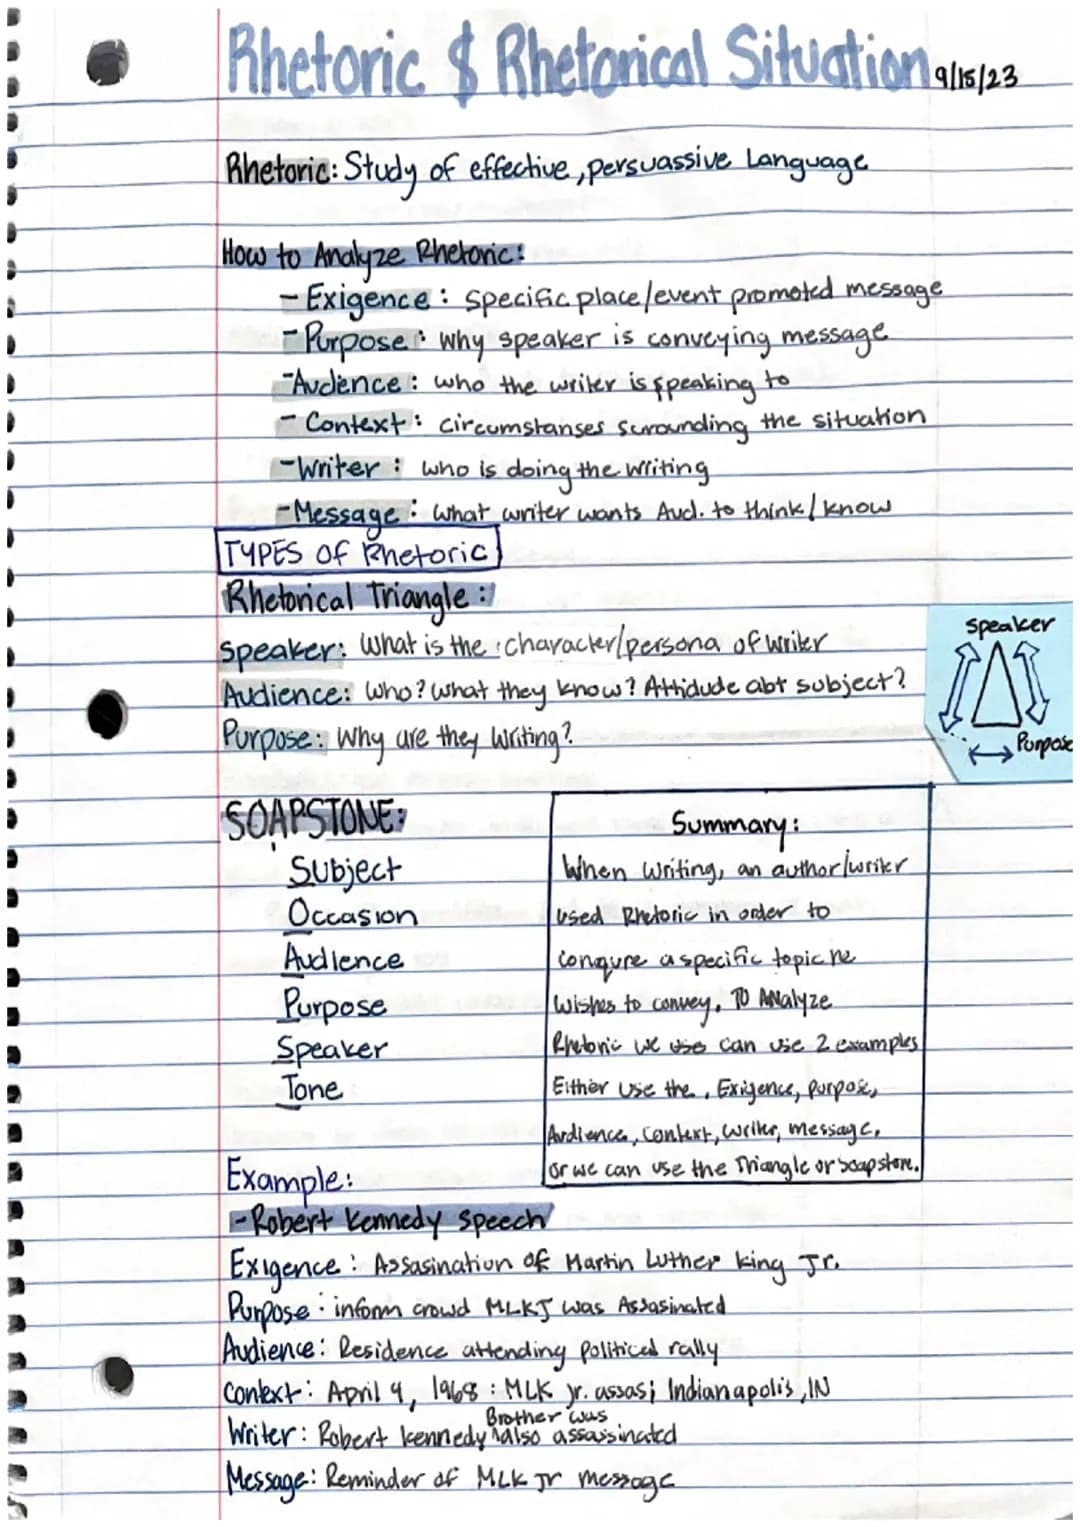 Rhetoric & Rhetorical Situation 9/15/23
Rhetoric: Study of effective, persuassive Language
How to Analyze Rhetoric:
- Exigence: specific place/event promoted message
- Purpose: why speaker is conveying message
- Audience: who the writer is speaking to
- Context: circumstanses surounding the situation
- Writer: who is doing the writing
- Message: what writer wants Aud. to think/know
TYPES of Rhetoric
Rhetorical Triangle:
Speaker: What is the character/persona of writer
Audience: Who? What they know? Attidude abt subject?
Purpose: Why are they writing?
speaker
Purpose
SOAPSTONE:
Subject
Occasion
Audience
Purpose
Speaker
Tone
Summary:
When writing, an author/writer
used Rhetoric in order to
conqure a specific topic he
wishes to convey. To Analyze
Rhetoric we use can use 2 examples
Either use the, Exigence, purpose,
Audience, Context, writer, message,
or we can use the Triangle or Soapstone.
Example:
- Robert Kennedy speech
Exigence: Assasination of Martin Luther King Jr.
Purpose: inform crowd MLKJ was Assasinated
Audience: Residence attending political rally
Context: April 4, 1968: MLK Jr. assasi Indianapolis, IN
Brother was
Writer: Robert Kennedy ^ also assassinated
Message: Reminder of MLK Jr message